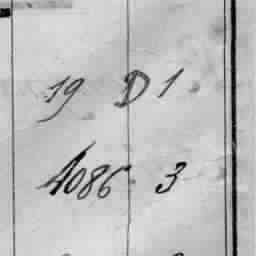 19 D 1
4086 3